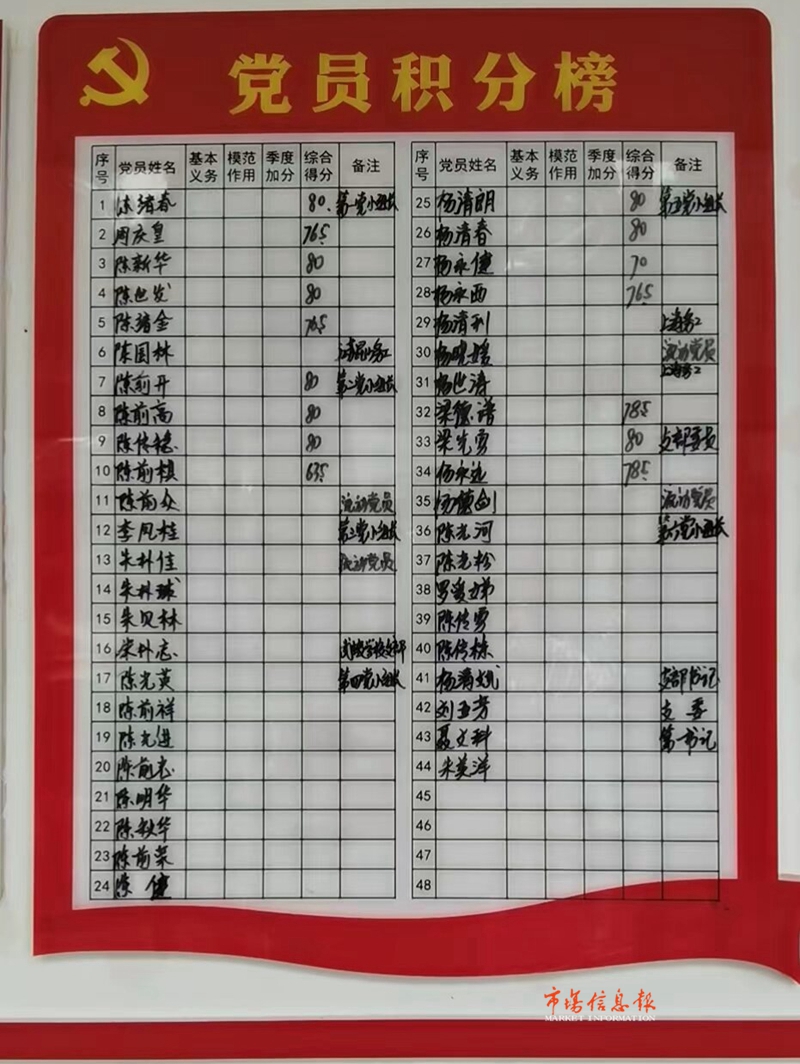 党员积分榜
序号 党员姓名 基本义务 模范作用 季度加分 综合得分 备注
1 陈绪春 80. 第一党小组长
2 周庆皇 76.5
3 陈新华 80
4 陈世发 80
5 陈绪金 76.5
6 陈国林
7 陈前开 80 第二党小组长
8 陈前高 80
9 陈传稳 80
10 陈前模 63.5
11 陈前众 流动党员
12 李凤桂 第三党小组长
13 朱朴佳 流动党员
14 朱朴球
15 朱贝林
16 朱朴志
17 陈光英 第四党小组长
18 陈前祥
19 陈光进
20 陈前志
21 陈明华
22 陈秋华
23 陈前荣
24 陈健
序号 党员姓名 基本义务 模范作用 季度加分 综合得分 备注
25 杨清朗 80 第五党小组长
26 杨清春 80
27 杨永健 70
28 杨永西 76.5
29 杨清利 上海务工
30 杨晓媛 流动党员
31 杨世涛 上海务工
32 梁德谱 78.5
33 梁先勇 80 支部委员
34 杨永远 78.5
35 杨德剑 流动党员
36 陈光河 第六党小组长
37 陈光松
38 罗爱娣
39 陈传勇
40 陈传栋
41 杨清斌 支部书记
42 刘玉芳 支委
43 聂文科 第一书记
44 朱英洋
45
46
47
48
市场信息报
MARKET INFORMATION